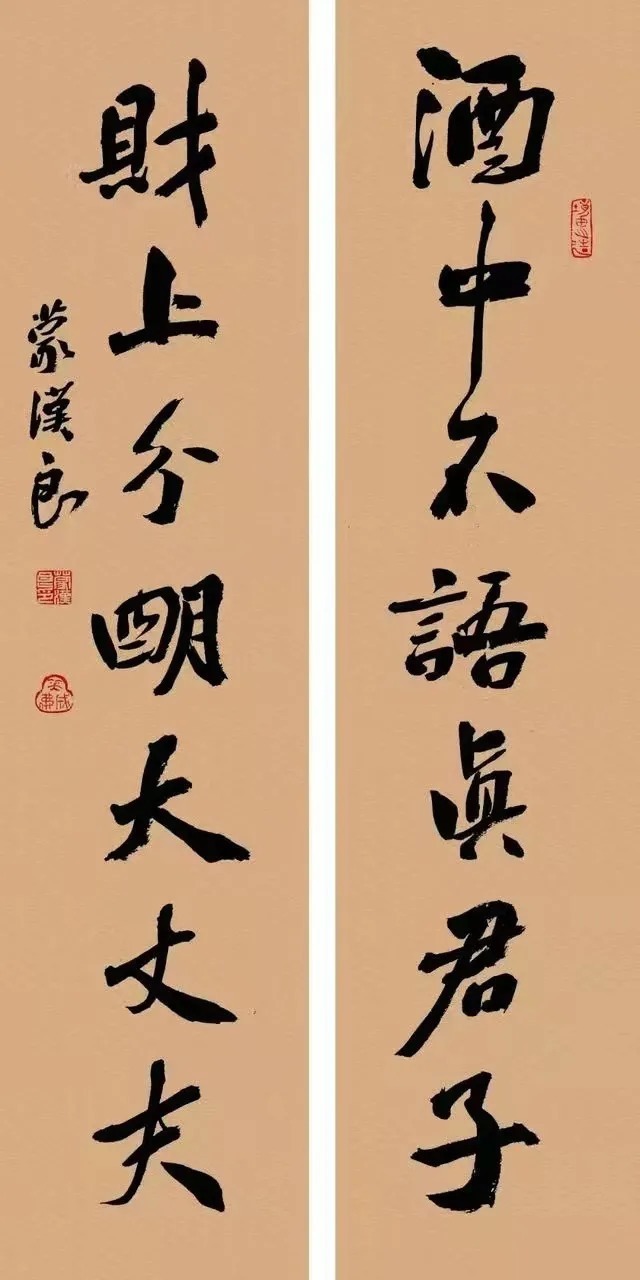 酒中不語真君子
財上分明大丈夫
蒙漢良